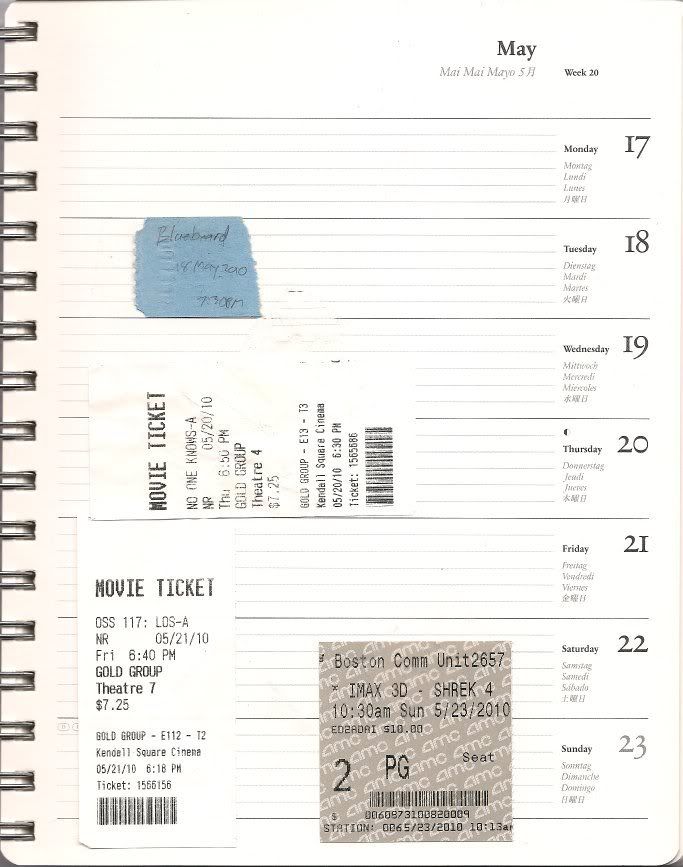 May
Mai Mai Mayo 5月 Week 20
Monday 17
Montag
Lundi
Lunes
月曜日
Bluebeard
18 May 2010
7:30PM
Tuesday 18
Dienstag
Mardi
Martes
火曜日
Wednesday 19
Mittwoch
Mercredi
Miércoles
水曜日
MOVIE TICKET
NO ONE KNOWS-A
NR 05/20/10
Thu 6:50 PM
GOLD GROUP
Theatre 4
$7.25
GOLD GROUP - E13 - T3
Kendall Square Cinema
05/20/10 6:30 PM
Ticket: 1565686
Thursday 20
Donnerstag
Jeudi
Jueves
木曜日
Friday 21
Freitag
Vendredi
Viernes
金曜日
MOVIE TICKET
OSS 117: LOS-A
NR 05/21/10
Fri 6:40 PM
GOLD GROUP
Theatre 7
$7.25
GOLD GROUP - E112 - T2
Kendall Square Cinema
05/21/10 6:18 PM
Ticket: 1566156
Saturday 22
Samstag
Samedi
Sábado
土曜日
Boston Comm Unit2657
* IMAX 3D - SHREK 4
10:30am Sun 5/23/2010
ED2ADAI $10.00
Seat
2 PG
amc
0060873100820009
STATION: 0065/23/2010 10:13am
Sunday 23
Sonntag
Dimanche
Domingo
日曜日